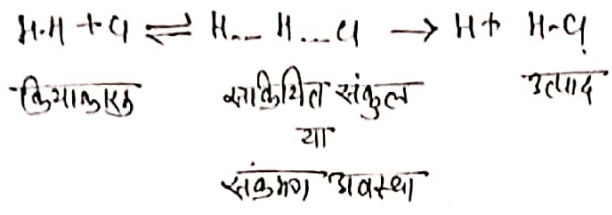 H-H + Cl ⇌ H... H...Cl → H + H-Cl
क्रियाकारक सक्रियित संकुल उत्पाद
या
संक्रमण अवस्था